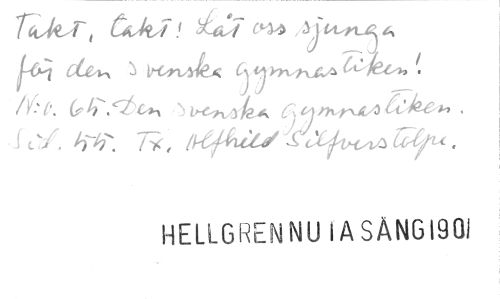 Takt, takt! Låt oss sjunga
för den svenska gymnastiken!
N:o. 65. Den svenska gymnastiken.
Sid. 55. Tx. Alfhild Silfverstolpe.
HELLGREN NU I A SÅNG 1901